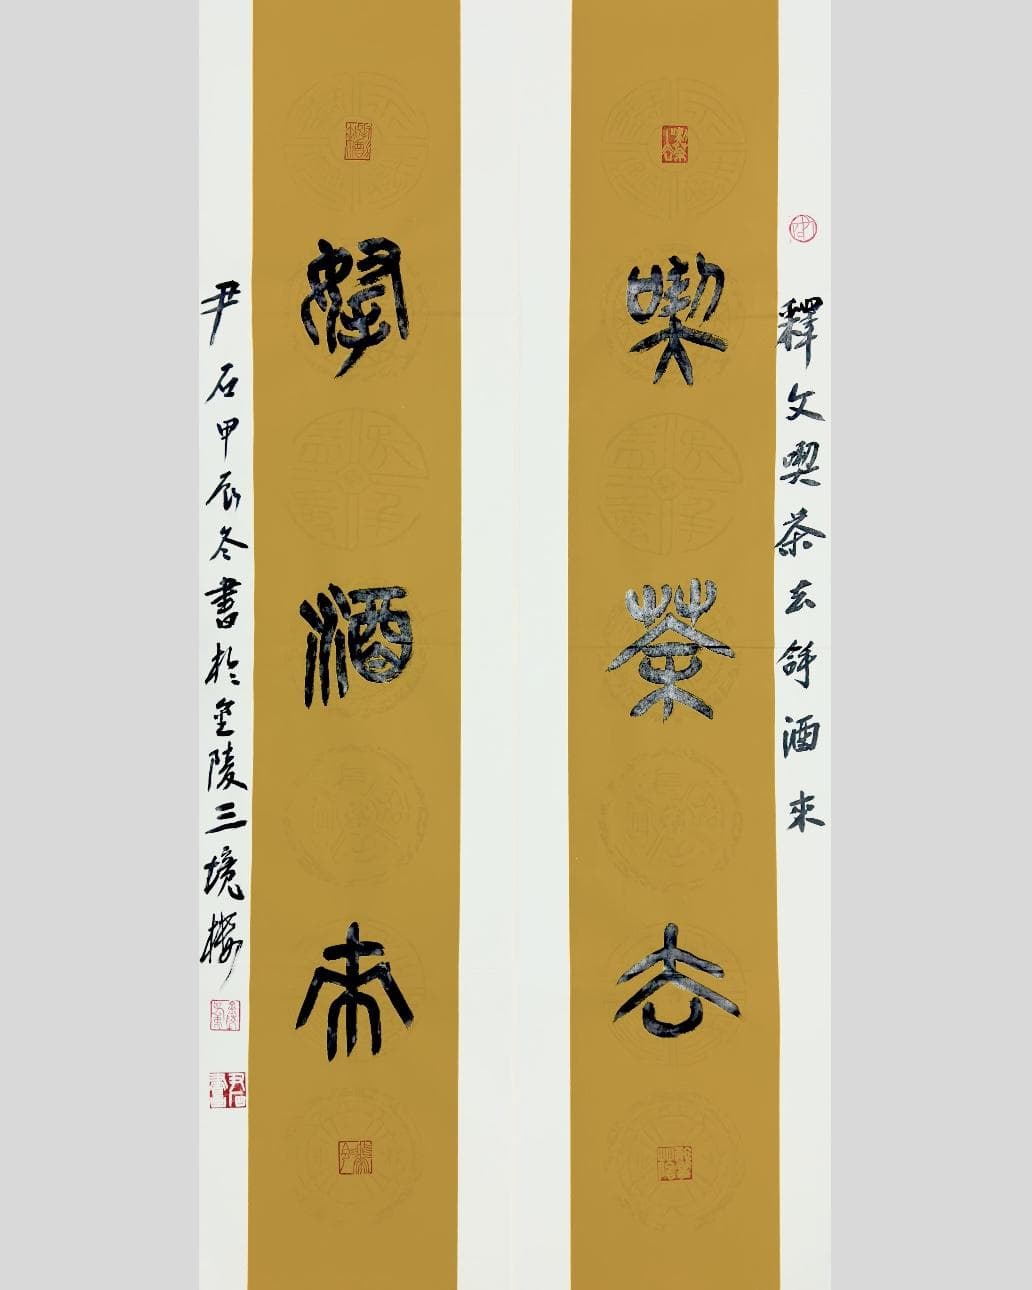 釋文喫茶去拿酒來
喫茶去
拏酒來
尹石甲辰冬書於金陵三境樓